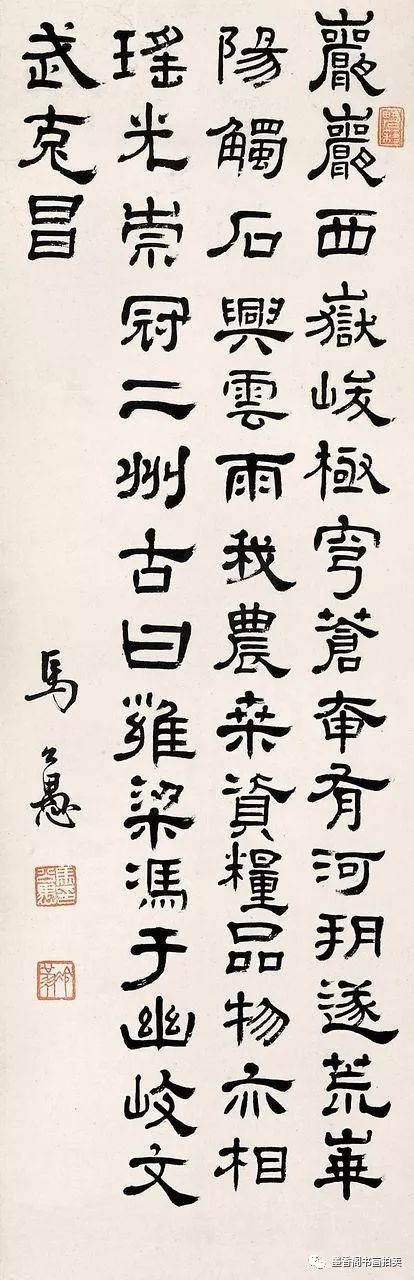 巖巖西嶽峻極穹蒼奄有河朔遂荒崋
陽觸石興雲雨我農桒資糧品物亦相
瑤光崇冠二州古曰雍梁馮于豳岐文
武克昌
馬公愚
墨香阁书画拍卖